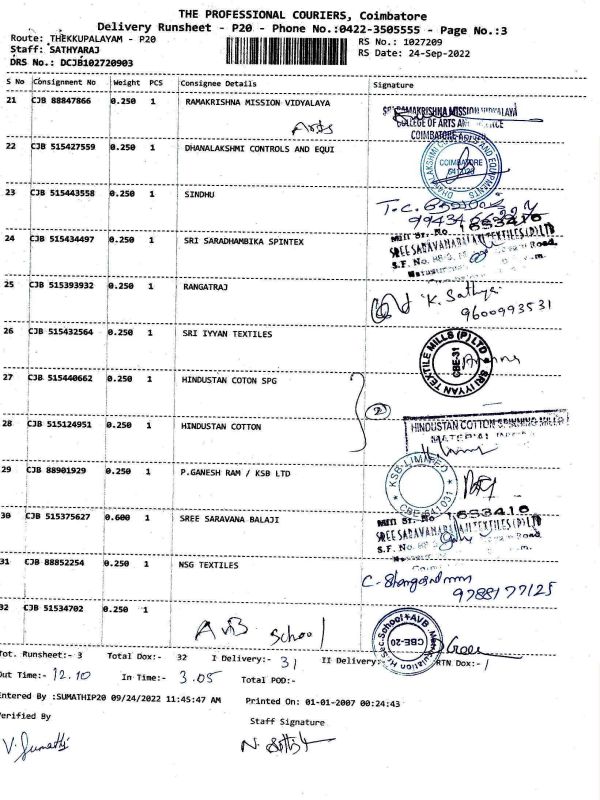 THE PROFESSIONAL COURIERS, Coimbatore
Delivery Runsheet - P20 - Phone No.:0422-3505555 - Page No.:3
Route: THEKKUPALAYAM - P20
RS No.: 1027209
Staff: SATHYARAJ
RS Date: 24-Sep-2022
DRS No.: DCJB102720903
S No Consignment No Weight PCS Consignee Details Signature
21 CJB 88847866 0.250 1 RAMAKRISHNA MISSION VIDYALAYA
Arts
SRI RAMAKRISHNA MISSION VIDYALAYA
COLLEGE OF ARTS AND SCIENCE
COIMBATORE
22 CJB 515427559 0.250 1 DHANALAKSHMI CONTROLS AND EQUI
DHANALAKSHMI CONTROLS AND EQUIPMENTS
COIMBATORE
23 CJB 515443558 0.250 1 SINDHU
T.C.
24 CJB 515434497 0.250 1 SRI SARADHAMBIKA SPINTEX
Mill Sr. No 1653416
SREE SARAVANABALAJI TEXTILES (P) LTD
S.F. No. Road,
25 CJB 515393932 0.250 1 RANGATRAJ
K. Sathya
9600993531
26 CJB 515432564 0.250 1 SRI IYYAN TEXTILES
SRI IYYAN TEXTILE MILLS (P) LTD
CBE-31
27 CJB 515440662 0.250 1 HINDUSTAN COTON SPG
2
28 CJB 515124951 0.250 1 HINDUSTAN COTTON
HINDUSTAN COTTON SPINNING MILLS
MATERIAL
29 CJB 88901929 0.250 1 P.GANESH RAM / KSB LTD
KSB LIMITED
CBE-641031
30 CJB 515375627 0.600 1 SREE SARAVANA BALAJI
Mill Sr. No 1653416
SREE SARAVANABALAJI TEXTILES (P) LTD
S.F. No. Road,
31 CJB 88852254 0.250 1 NSG TEXTILES
C.
9788177125
32 CJB 51534702 0.250 1
AVB School
AVB Matriculation Hr.Sec.School
CBE-20
Tot. Runsheet:- 3 Total Dox:- 32 I Delivery:- 31 II Delivery: RTN Dox:- 1
Out Time:- 12.10 In Time:- 3.05 Total POD:-
Entered By :SUMATHIP20 09/24/2022 11:45:47 AM Printed On: 01-01-2007 00:24:43
Verified By
Staff Signature
V. Sumathi